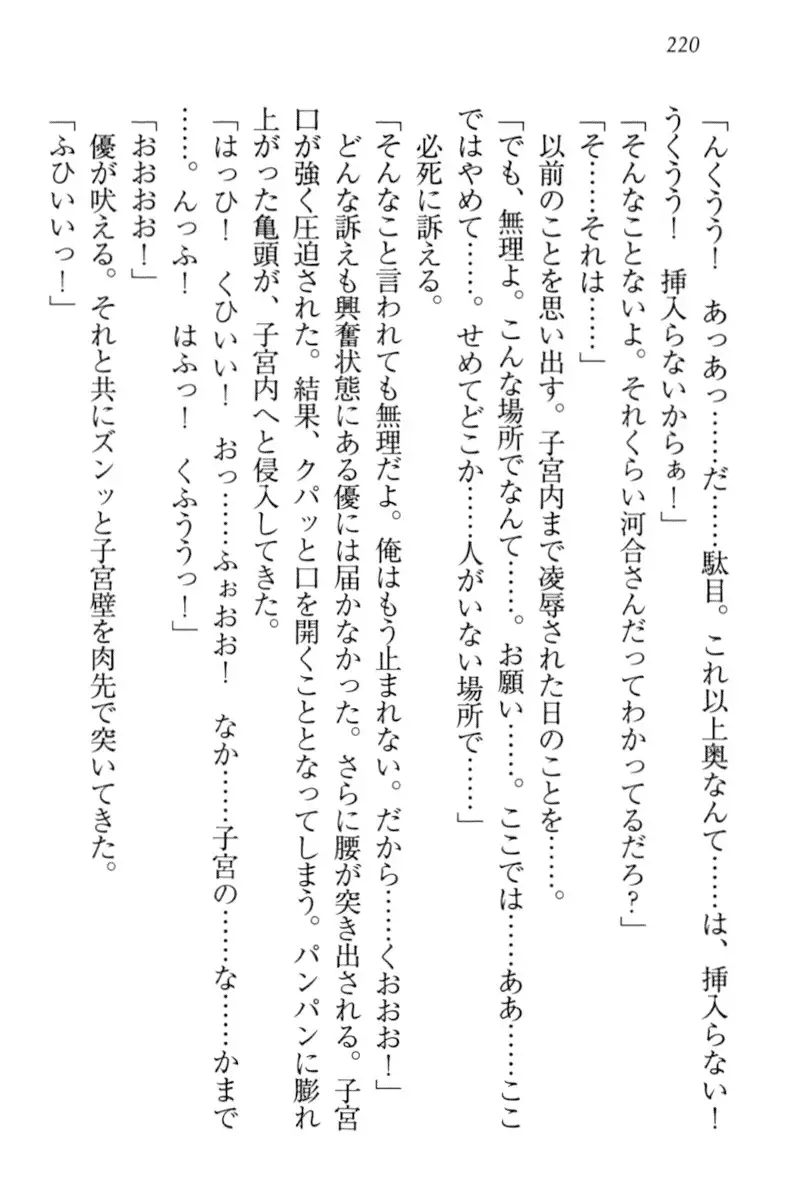 220
「んくうう！　あっあっ……だ……駄目。これ以上奥なんて……は、挿入らない！
うくうう！　挿入らないからぁ！」
「そんなことないよ。それくらい河合さんだってわかってるだろ？」
「そ……それは……」
　以前のことを思い出す。子宮内まで凌辱された日のことを……。
「でも、無理よ。こんな場所でなんて……。お願い……。ここでは……ああ……ここ
ではやめて……。せめてどこか……人がいない場所で……」
　必死に訴える。
「そんなこと言われても無理だよ。俺はもう止まれない。だから……くおおお！」
　どんな訴えも興奮状態にある優には届かなかった。さらに腰が突き出される。子宮
口が強く圧迫された。結果、クパッと口を開くこととなってしまう。パンパンに膨れ
上がった亀頭が、子宮内へと侵入してきた。
「はっひ！　くひいい！　おっ……ふぉおお！　なか……子宮の……な……かまで
……。んっふ！　はふっ！　くふううっ！」
「おおおお！」
　優が吠える。それと共にズンッと子宮壁を肉先で突いてきた。
「ふひいいっ！」